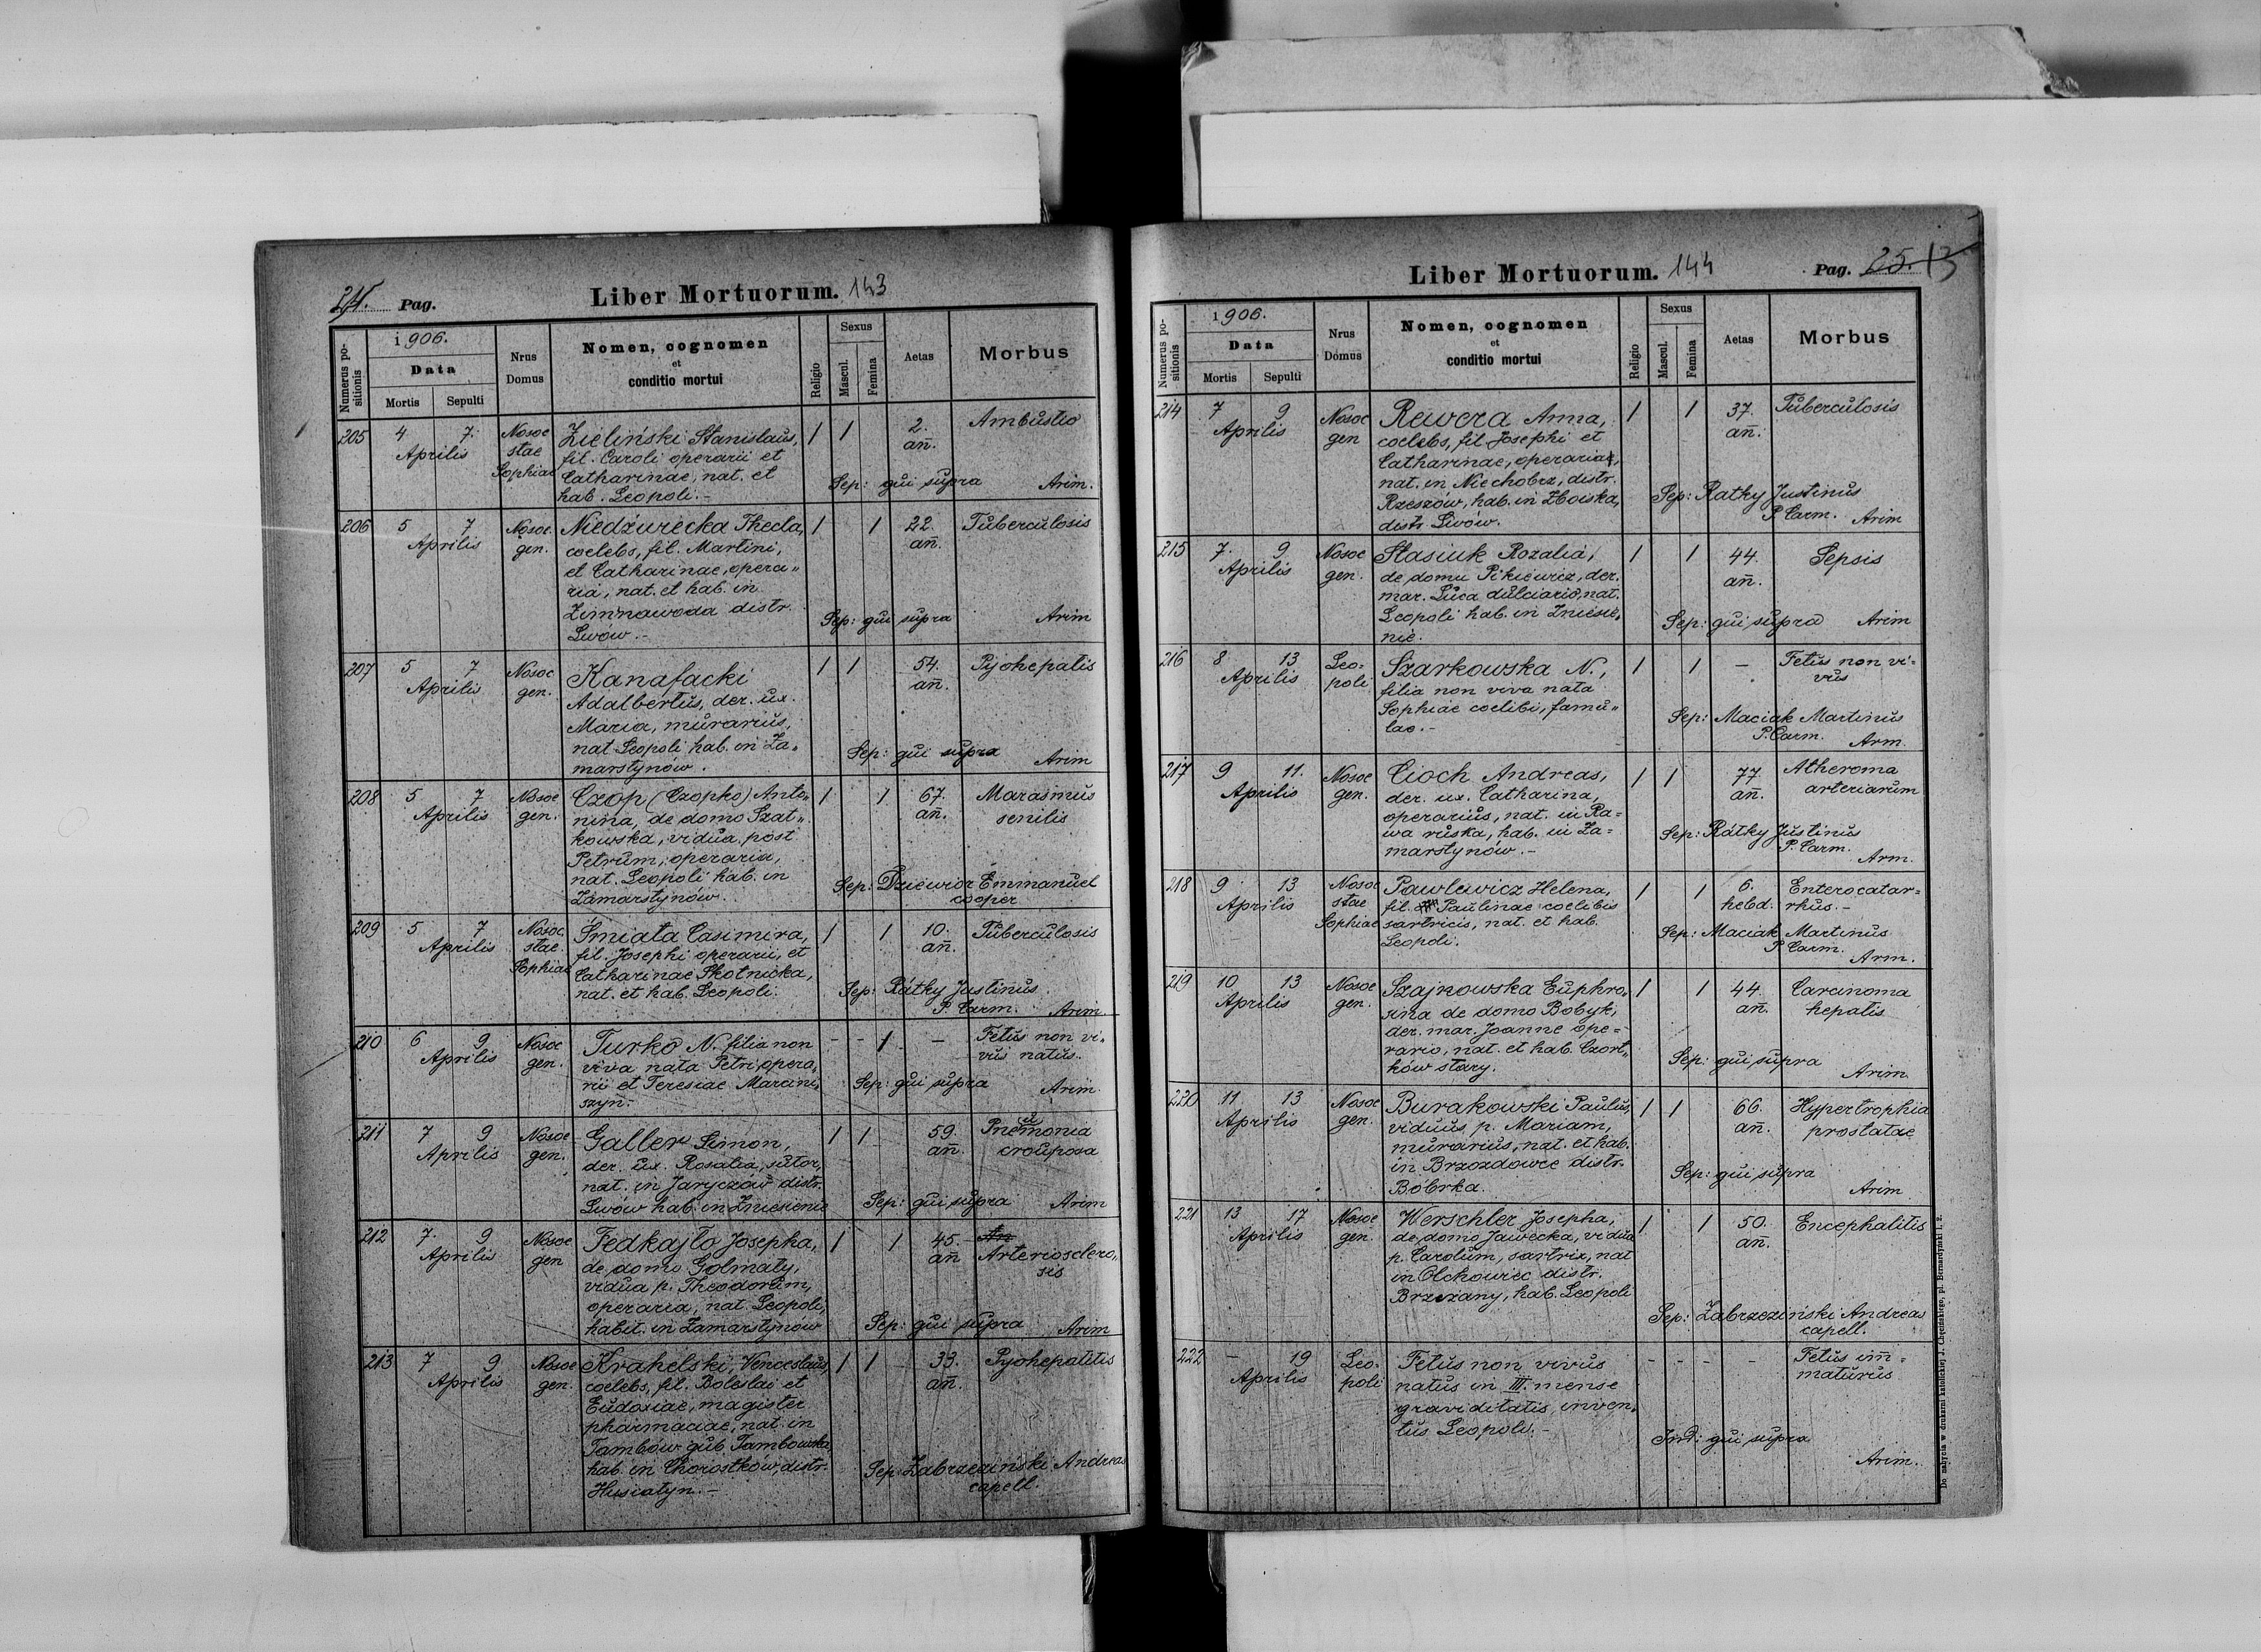 24. Pag. Liber Mortuorum. 143
Numerus positionis
1906.
Data
Mortis Sepulti
Nrus Domus
Nomen, cognomen
et
conditio mortui
Religio
Sexus
Mascul. Femina
Aetas
Morbus
205 4 7. Nosoc Zieliński Stanislaus, 1 1 2. Ambustio
Aprilis stae fil. Caroli operarii et añ.
Sophiae Catharinae, nat. et Sep: qui supra Arim.
hab. Leopoli.-
206 5 7 Nosoc. Niedźwiecka Thecla, 1 1 22. Tuberculosis
Aprilis gen. coelebs, fil. Martini, añ.
et Catharinae, opera„
ria, nat. et hab. in
Zimnawoda distr. Sep: qui supra Arim
Lwów.-
207 5 7 Nosoc Kanafacki 1 1 54. Pyohepatis
Aprilis gen. Adalbertus, der. ux. añ.
Maria, murarius,
nat Leopoli hab. in Za„ Sep: qui supra Arim
marstynów.
208 5 7 Nosoc Czop (Czopko) Anto„ 1 1 67. Marasmus
Aprilis gen. nina, de domo Szat„ añ. senilis
kowska, vidua post
Petrum, operaria,
nat. Leopoli hab. in Sep: Dziewior Emmanuel
Zamarstynów. cooper
209 5 7 Nosoc. Śmiata Casimira, 1 1 10. Tuberculosis
Aprilis stae. fil. Josephi operarii, et añ.
Sophiae Catharinae Skotnicka, Sep: Rátky Justinus
nat. et hab. Leopoli. P. Carm. Arim.
210 6 9 Nosoc Turko N. filia non - - 1 - Fetus non vi„
Aprilis gen. viva nata Petri, opera„ vus natus.
rii et Teresiae Marcini„ Sep: qui supra Arim
szyn.-
211 7 9 Nosoc Galler Simon, 1 1 59. Pneumonia
Aprilis gen. der. ux. Rosalia, sutor, añ. crouposa
nat. in Jaryczów distr.
Lwów hab. in Zniesienie Sep: qui supra Arim
212 7. 9 Nosoc Fedkajło Josepha, 1 1 45. An
Aprilis gen de domo Golmaty, añ Arteriosclero„
vidua p. Theodorum, sis
operaria, nat. Leopoli,
habit. in Zamarstynów Sep: qui supra Arim
213 7 9 Nosoc Krahelski Venceslaus, 1 1 33. Pyohepatitis
Aprilis gen. coelebs, fil. Boleslai et añ.
Eudoxiae, magister
pharmaciae, nat. in
Tambów gub. Tambowska,
hab. in Chorostków, distr. Sep: Zabrzeziński Andreas
Husiatyn.- capell.
Liber Mortuorum. 144 Pag. 25. 13
Numerus positionis
1906.
Data
Mortis Sepulti
Nrus Domus
Nomen, cognomen
et
conditio mortui
Religio
Sexus
Mascul. Femina
Aetas
Morbus
214 7 9 Nosoc Rewera Anna, 1 1 37. Tuberculosis
Aprilis gen coelebs, fil Josephi et añ.
Catharinae, operariae,
nat. in Niechobrz, distr.
Rzeszów, hab. in Zboiska, Sep: Ratky Justinus
distr. Lwów. P. Carm. Arim
215 7. 9 Nosoc Stasiuk Rozalia, 1 1 44. Sepsis
Aprilis gen. de domu Pikiewicz, der. añ.
mar. Luca dulciario, nat.
Leopoli hab. in Zniesie„ Sep: qui supra Arim
nie.
216 8 13 Leo- Szarkowska N., 1 1 - Fetus non vi-
Aprilis poli filia non viva nata vus
Sophiae coelibi, famu„ Sep: Maciak Martinus
lae.- P. Carm. Arm.
217 9 11. Nosoc Cioch Andreas, 1 1 77 Atheroma
Aprilis gen. der. ux. Catharina, añ. arteriarum
operarius, nat. in Ra-
wa ruska, hab. in Za- Sep: Rátky Justinus
marstynów.- P. Carm. Arm.
218 9 13 Nosoc Pawlewicz Helena, 1 1 6. Enterocatar-
Aprilis stae fil. Paulinae coelibis hebd. rhus.-
Sophiae sartricis, nat. et hab. Sep: Maciak Martinus
Leopoli. P Carm. Arim.
219 10 13 Nosoc Szajnowska Euphro„ 1 1 44. Carcinoma
Aprilis gen. sina de domo Bobyk, añ. hepatis
der. mar. Joanne ope-
rario, nat. et hab. Czort„ Sep: qui supra
ków stary. Arim.
220 11 13 Nosoc Burakowski Paulus, 1 1 66. Hypertrophia
Aprilis gen. viduus p. Mariam, añ. prostatae
murarius, nat. et hab.
in Brzozdowce distr. Sep: qui supra
Bóbrka. Arim
221 13 17 Nosoc Werschler Josepha, 1 1 50. Encephalitis
Aprilis gen. de domo Jawecka, vidua añ.
p. Carolum, sartrix, nat
in Olchowiec distr.
Brzeżany, hab. Leopoli Sep: Zabrzeziński Andreas
capell.
222 - 19 Leo- Fetus non vivus - - - - Fetus im̃-
Aprilis poli natus in III. mense maturus
graviditatis, inven„
tus Leopoli.- Ind: qui supra
Arim.
Do nabycia w drukarni katolickiej J. Chęcińskiego, pl. Bernardyński l. 2.